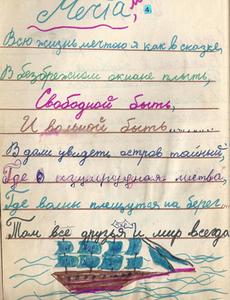 Мечта,
4
Всю жизнь мечтою я как в сказке,
В безбрежном океане плыть,
Свободной быть,
И вольной быть........
В дали увидеть остров тайный;
Где изумрудная листва,
Где волны плещутся на берег...
Там все друзья и мир всегда